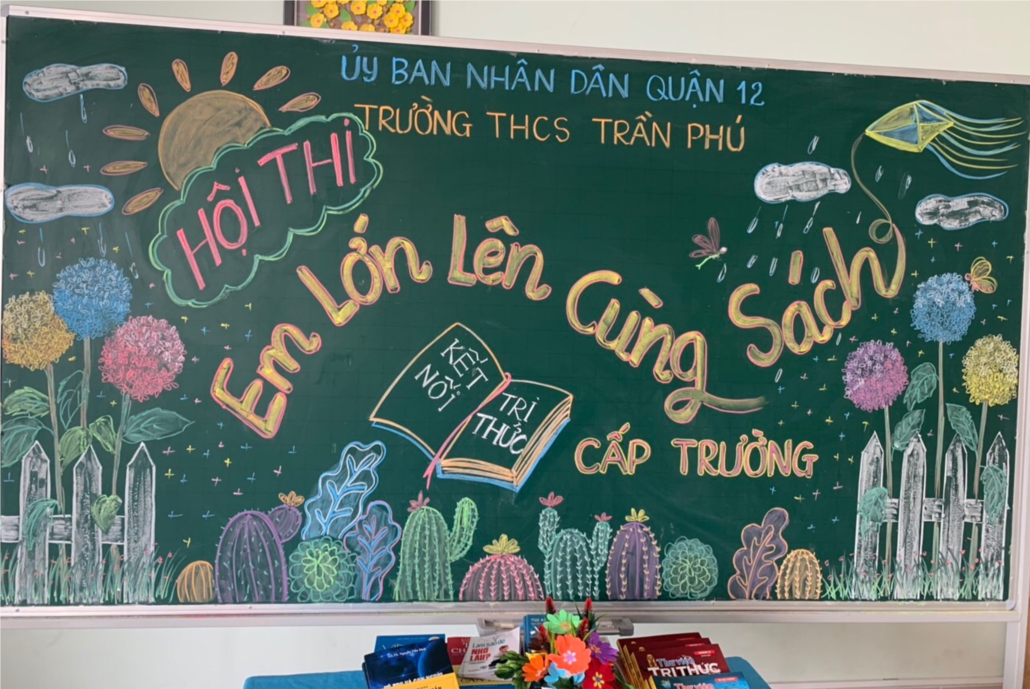 ỦY BAN NHÂN DÂN QUẬN 12
TRƯỜNG THCS TRẦN PHÚ
HỘI THI
Em Lớn Lên Cùng Sách
KẾT NỐI
TRI THỨC
CẤP TRƯỜNG
Làm sao để
NHỚ LÂU?
Thư viện
TRI THỨC